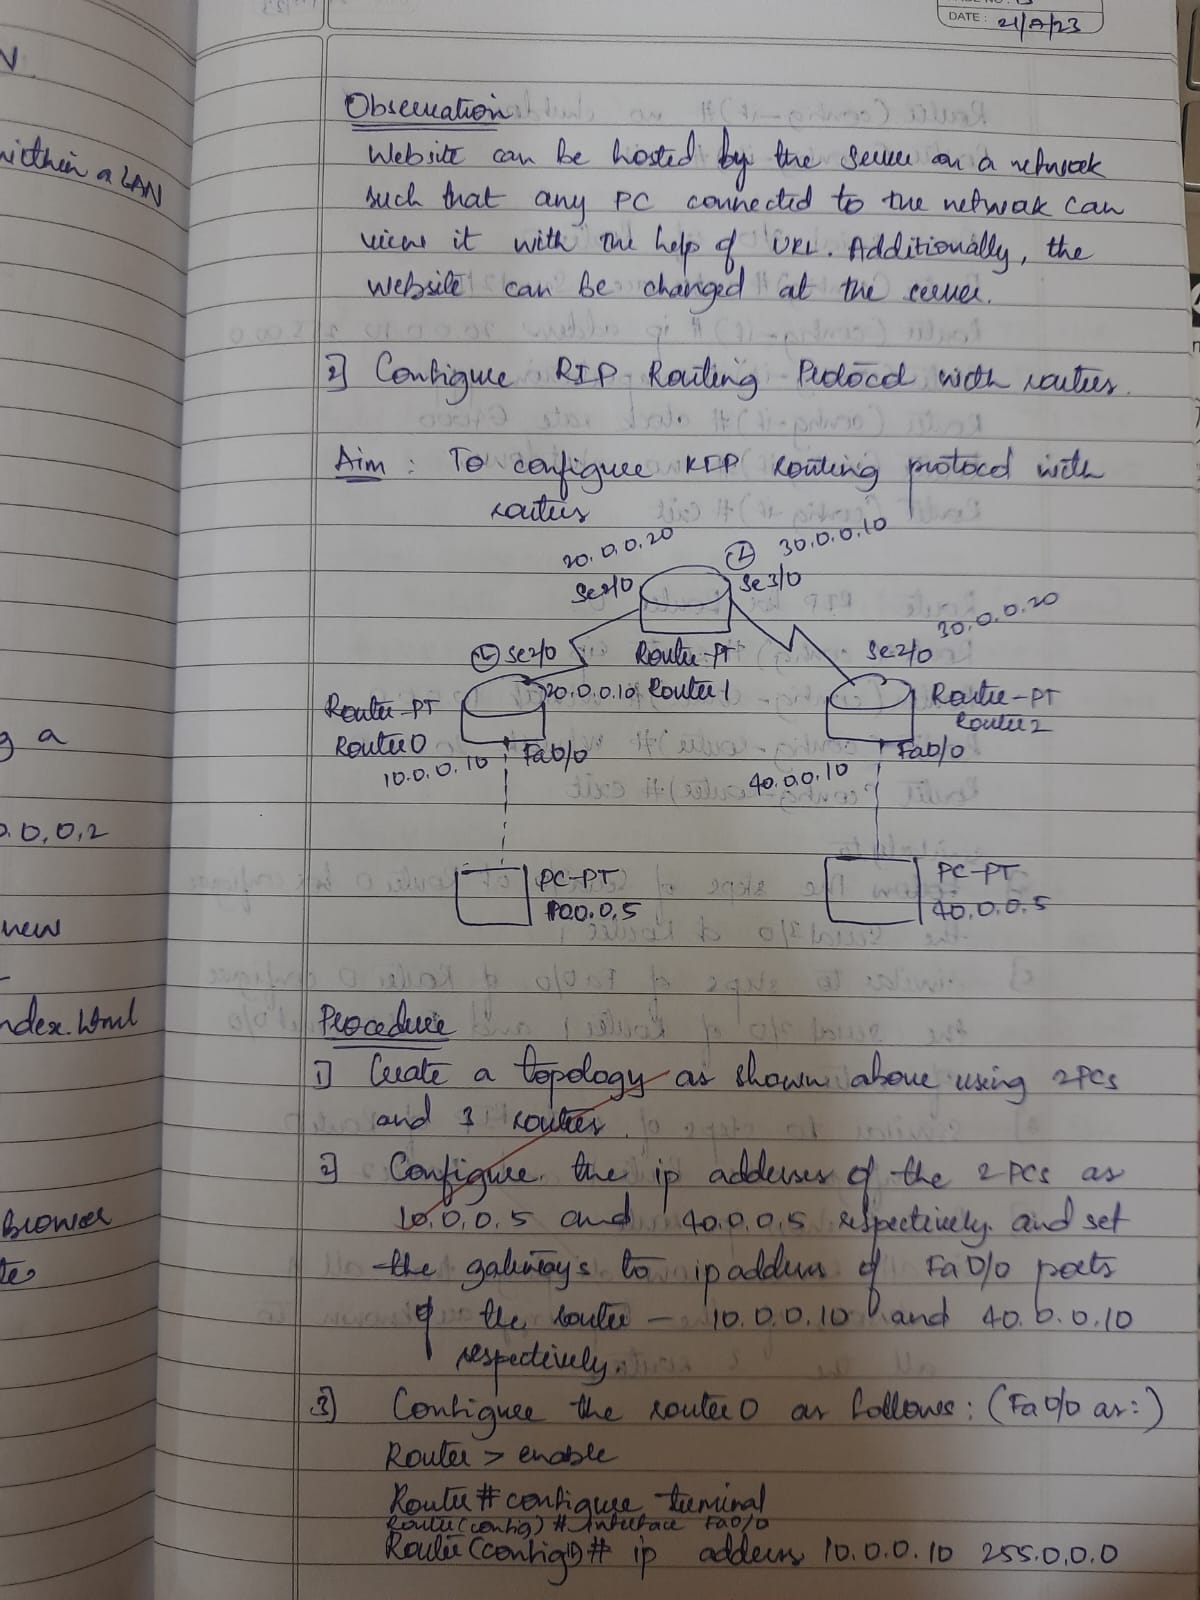 DATE: 21/8/23
N
within a LAN
g a
0.0.0.2
new
index.html
Browser
Observation
Website can be hosted by the server on a network
such that any PC connected to the network can
view it with the help of URL. Additionally, the
website can be changed at the server.
2] Configure RIP Routing Protocol with routers.
Aim : To configure RIP Routing protocol with
routers
20.0.0.20
30.0.0.10
Se2/0
Se3/0
30.0.0.20
Se2/0
Router-PT
Se2/0
20.0.0.10
Router 1
Router-PT
Router-PT
Router 2
Router 0
Fa0/0
Fa0/0
10.0.0.10
40.0.0.10
PC-PT
PC-PT
10.0.0.5
40.0.0.5
Procedure
1] Create a topology as shown above using 2PCs
and 3 routers.
2] Configure the ip addresses of the 2 PCs as
10.0.0.5 and 40.0.0.5 respectively. and set
the gateways to ip address of Fa0/0 ports
of the router – 10.0.0.10 and 40.0.0.10
respectively.
3] Configure the router 0 as follows: (Fa0/0 as:)
Router > enable
Router # configure terminal
Router(config) # interface Fa0/0
Router(config-if) # ip address 10.0.0.10 255.0.0.0